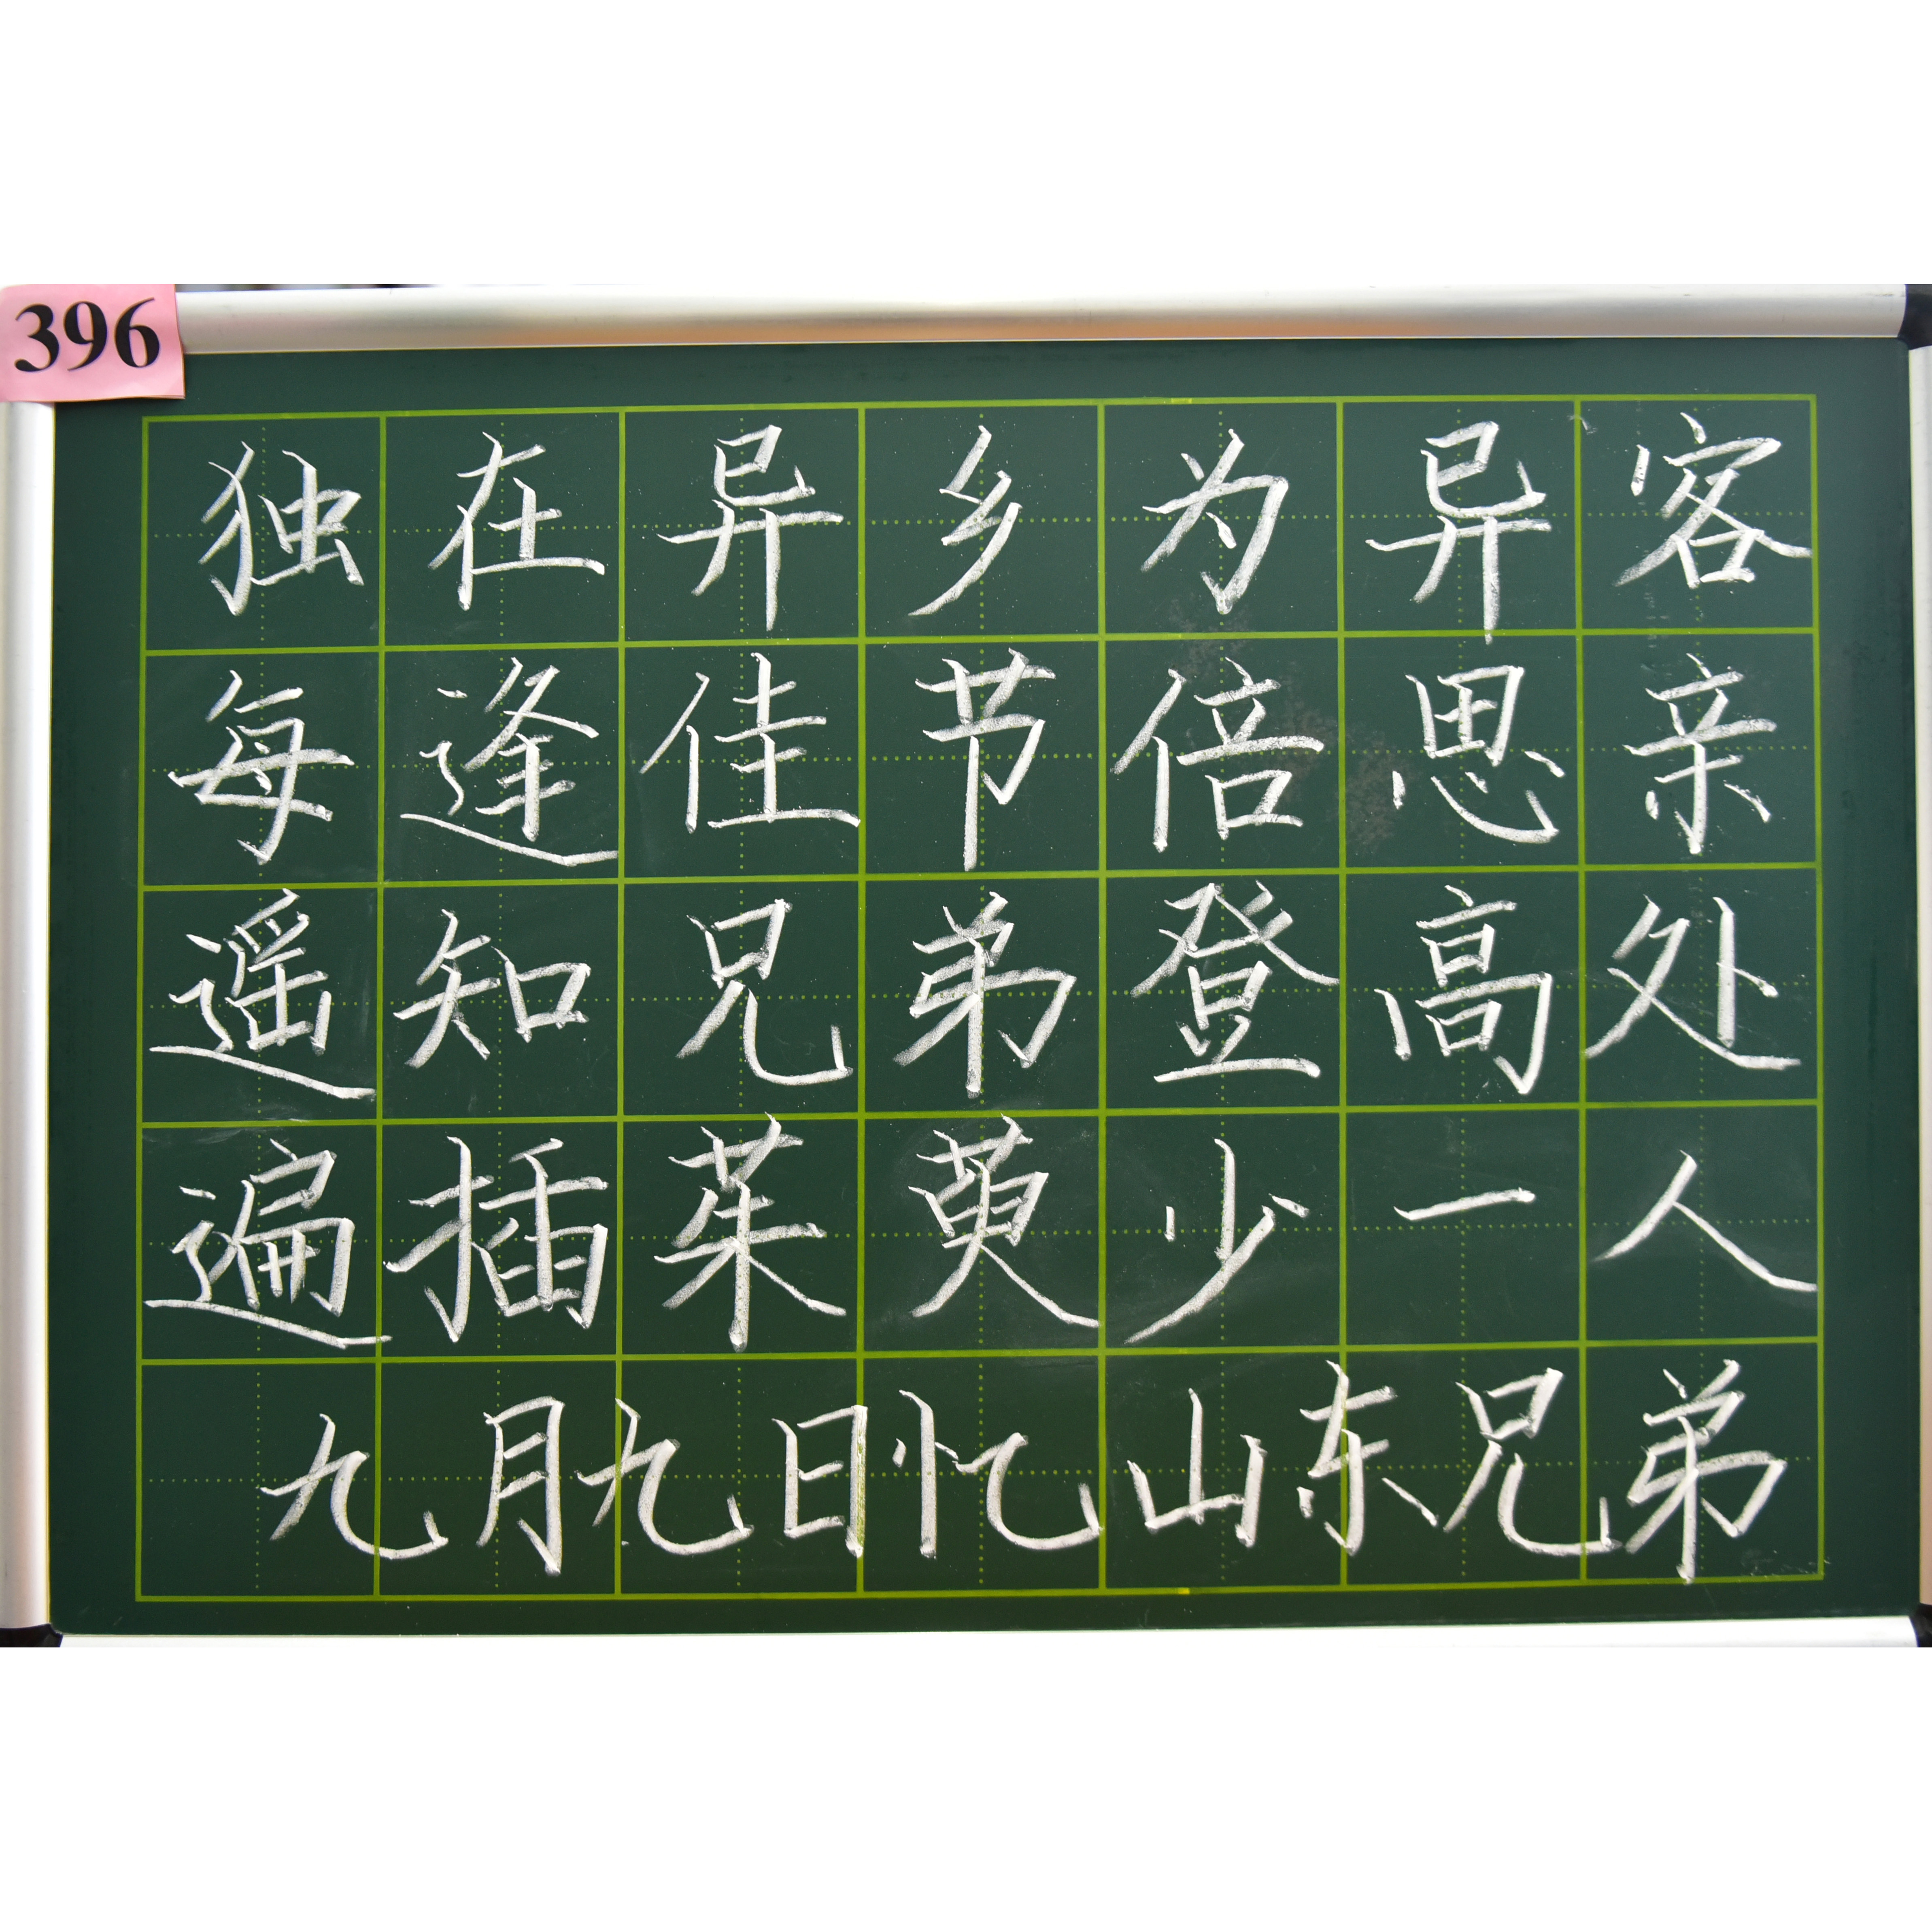 396
独在异乡为异客
每逢佳节倍思亲
遥知兄弟登高处
遍插茱萸少一人
九月九日忆山东兄弟